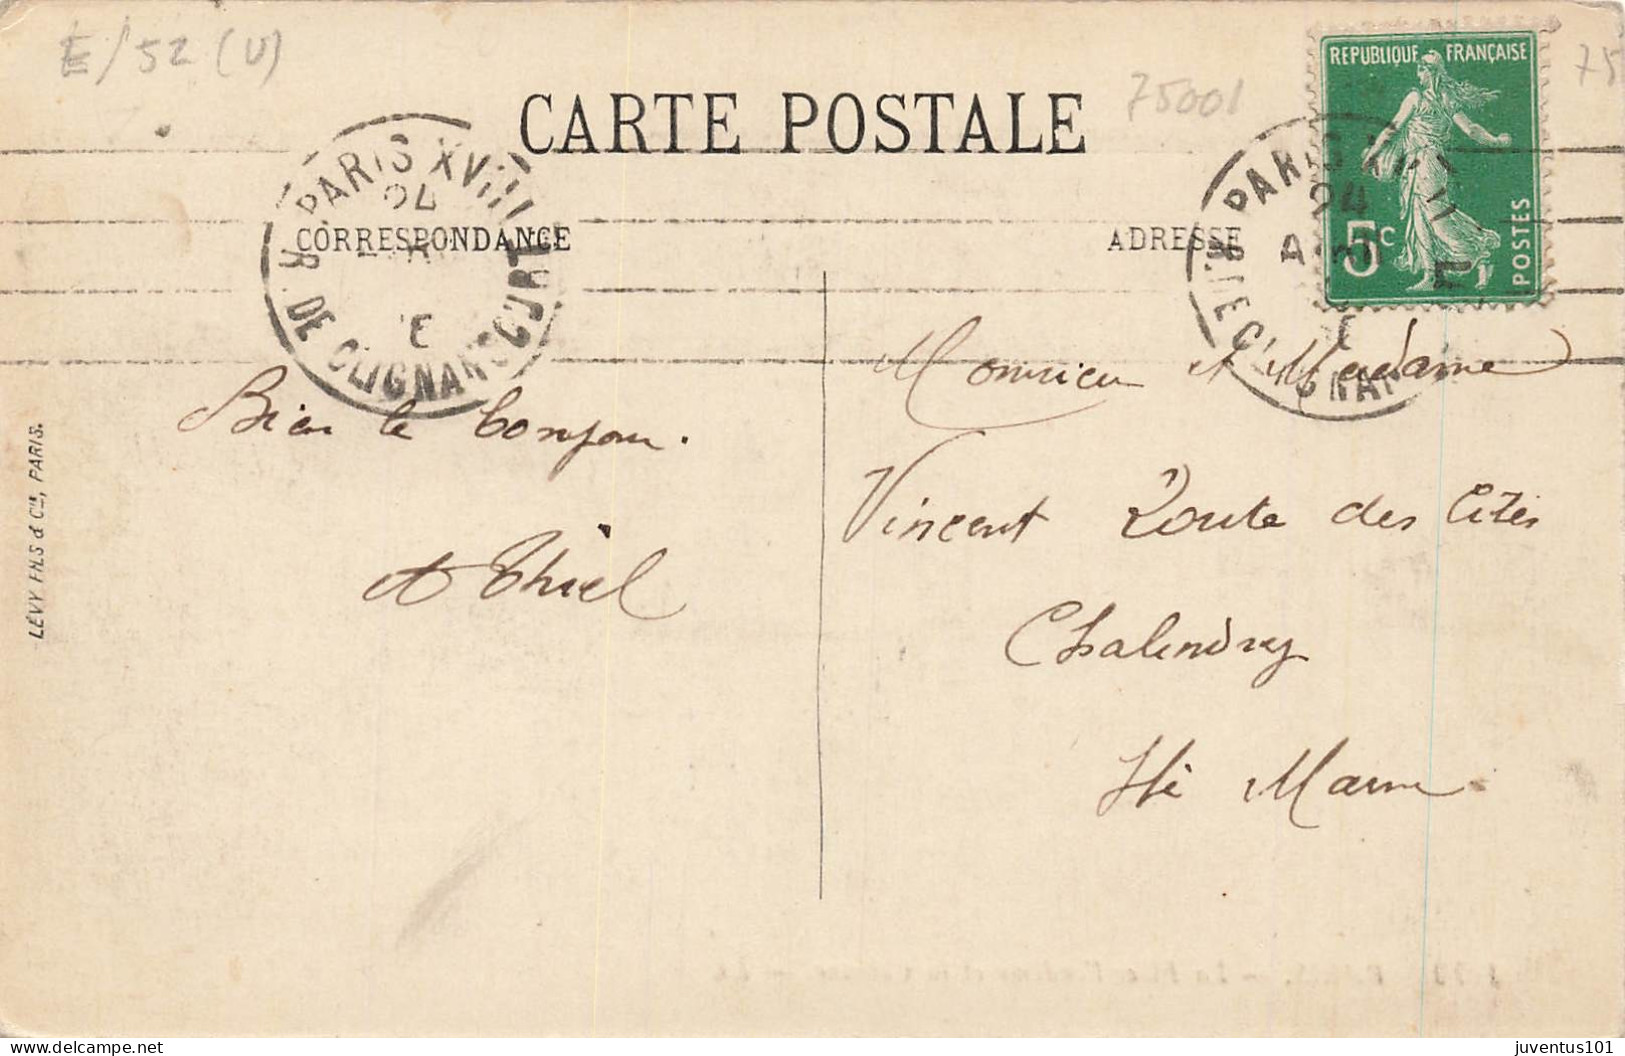 E/52 (U)
CARTE POSTALE
75001
75
REPUBLIQUE FRANÇAISE
5c
POSTES
PARIS XVIII
24
R. DE CLIGNANCOURT
PARIS XVIII
24
CORRESPONDANCE
ADRESSE
Monsieur et Madame
Bien le bonjour.
Vincent Route des Cités
A Thiel
Chalindrey
Hte Marne
LÉVY FILS & Cie, PARIS.
www.delcampe.net
juventus101